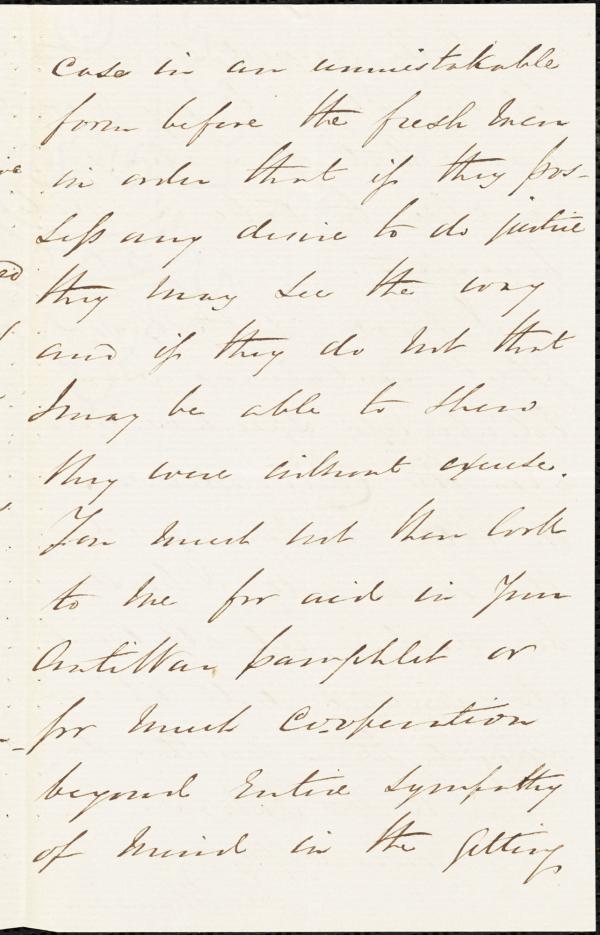 case in an unmistakable
form before the fresh men
in order that if they pos-
sess any desire to do justice
they may see the way
and if they do not that
I may be able to show
they were without excuse.
You must not then look
to me for aid in your
AntiWar pamphlet or
for much Co-operation
beyond Entire sympathy
of mind in the getting